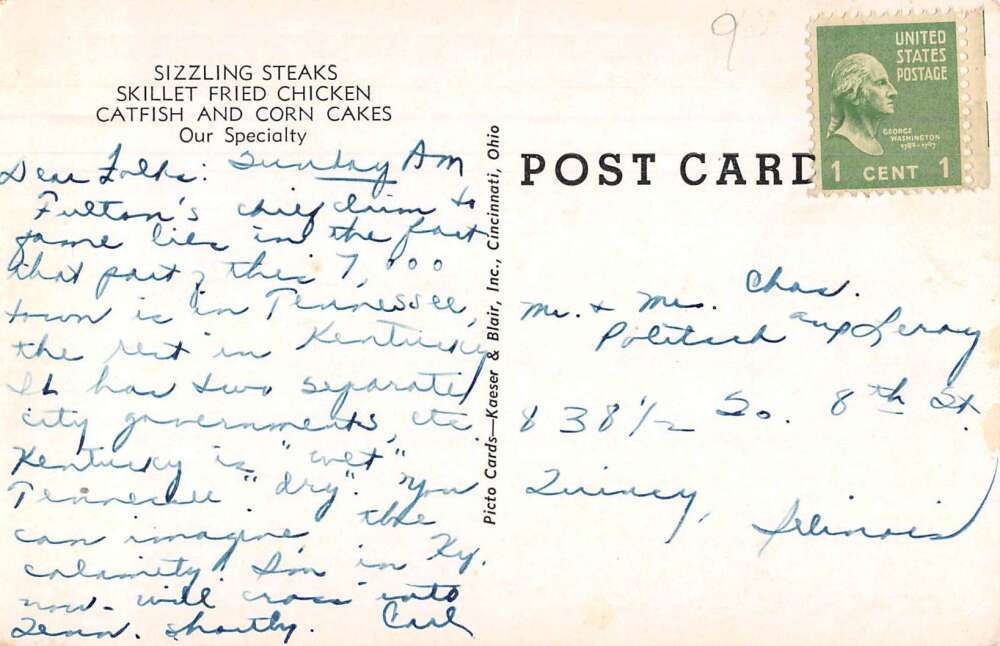 SIZZLING STEAKS
SKILLET FRIED CHICKEN
CATFISH AND CORN CAKES
Our Specialty
Dear Folks: Sunday AM
Fulton's chief claim to
fame lies in the fact
that part of this 7,000
town is in Tennessee,
the rest in Kentucky
It has two separate
city governments, etc.
Kentucky is "wet"
Tennessee "dry". You
can imagine the
calamity. I'm in Ky.
now - will cross into
Tenn. shortly. Carl
Picto Cards—Kaeser & Blair, Inc., Cincinnati, Ohio
9
POST CARD
UNITED
STATES
POSTAGE
GEORGE
WASHINGTON
1789-1797
1 CENT 1
Mr. & Mrs. Chas.
Politsch and Leroy
838 1/2 So. 8th St.
Quincy,
Illinois